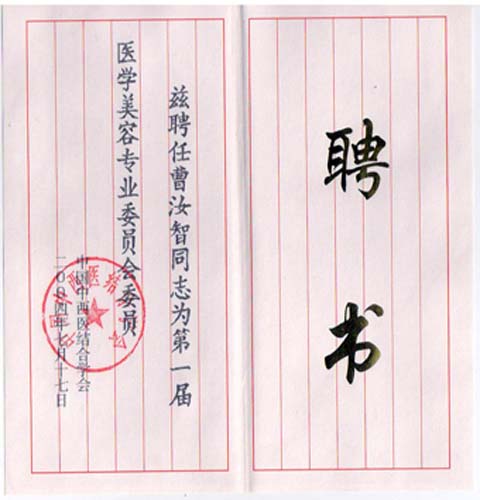 聘书
兹聘任曹汝智同志为第一届
医学美容专业委员会委员
中国中西医结合学会
二〇〇四年七月十七日